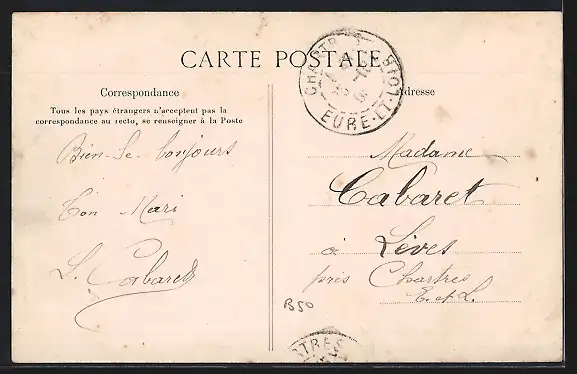 CARTE POSTALE
CHARTRES
EURE-ET-LOIR
Correspondance
Adresse
Tous les pays étrangers n'acceptent pas la
correspondance au recto, se renseigner à la Poste
Bien-Le-bonjours
Ton Mari
L. Cabaret
Madame
Cabaret
à Lèves
près Chartres
E. et L.
B50
TRES